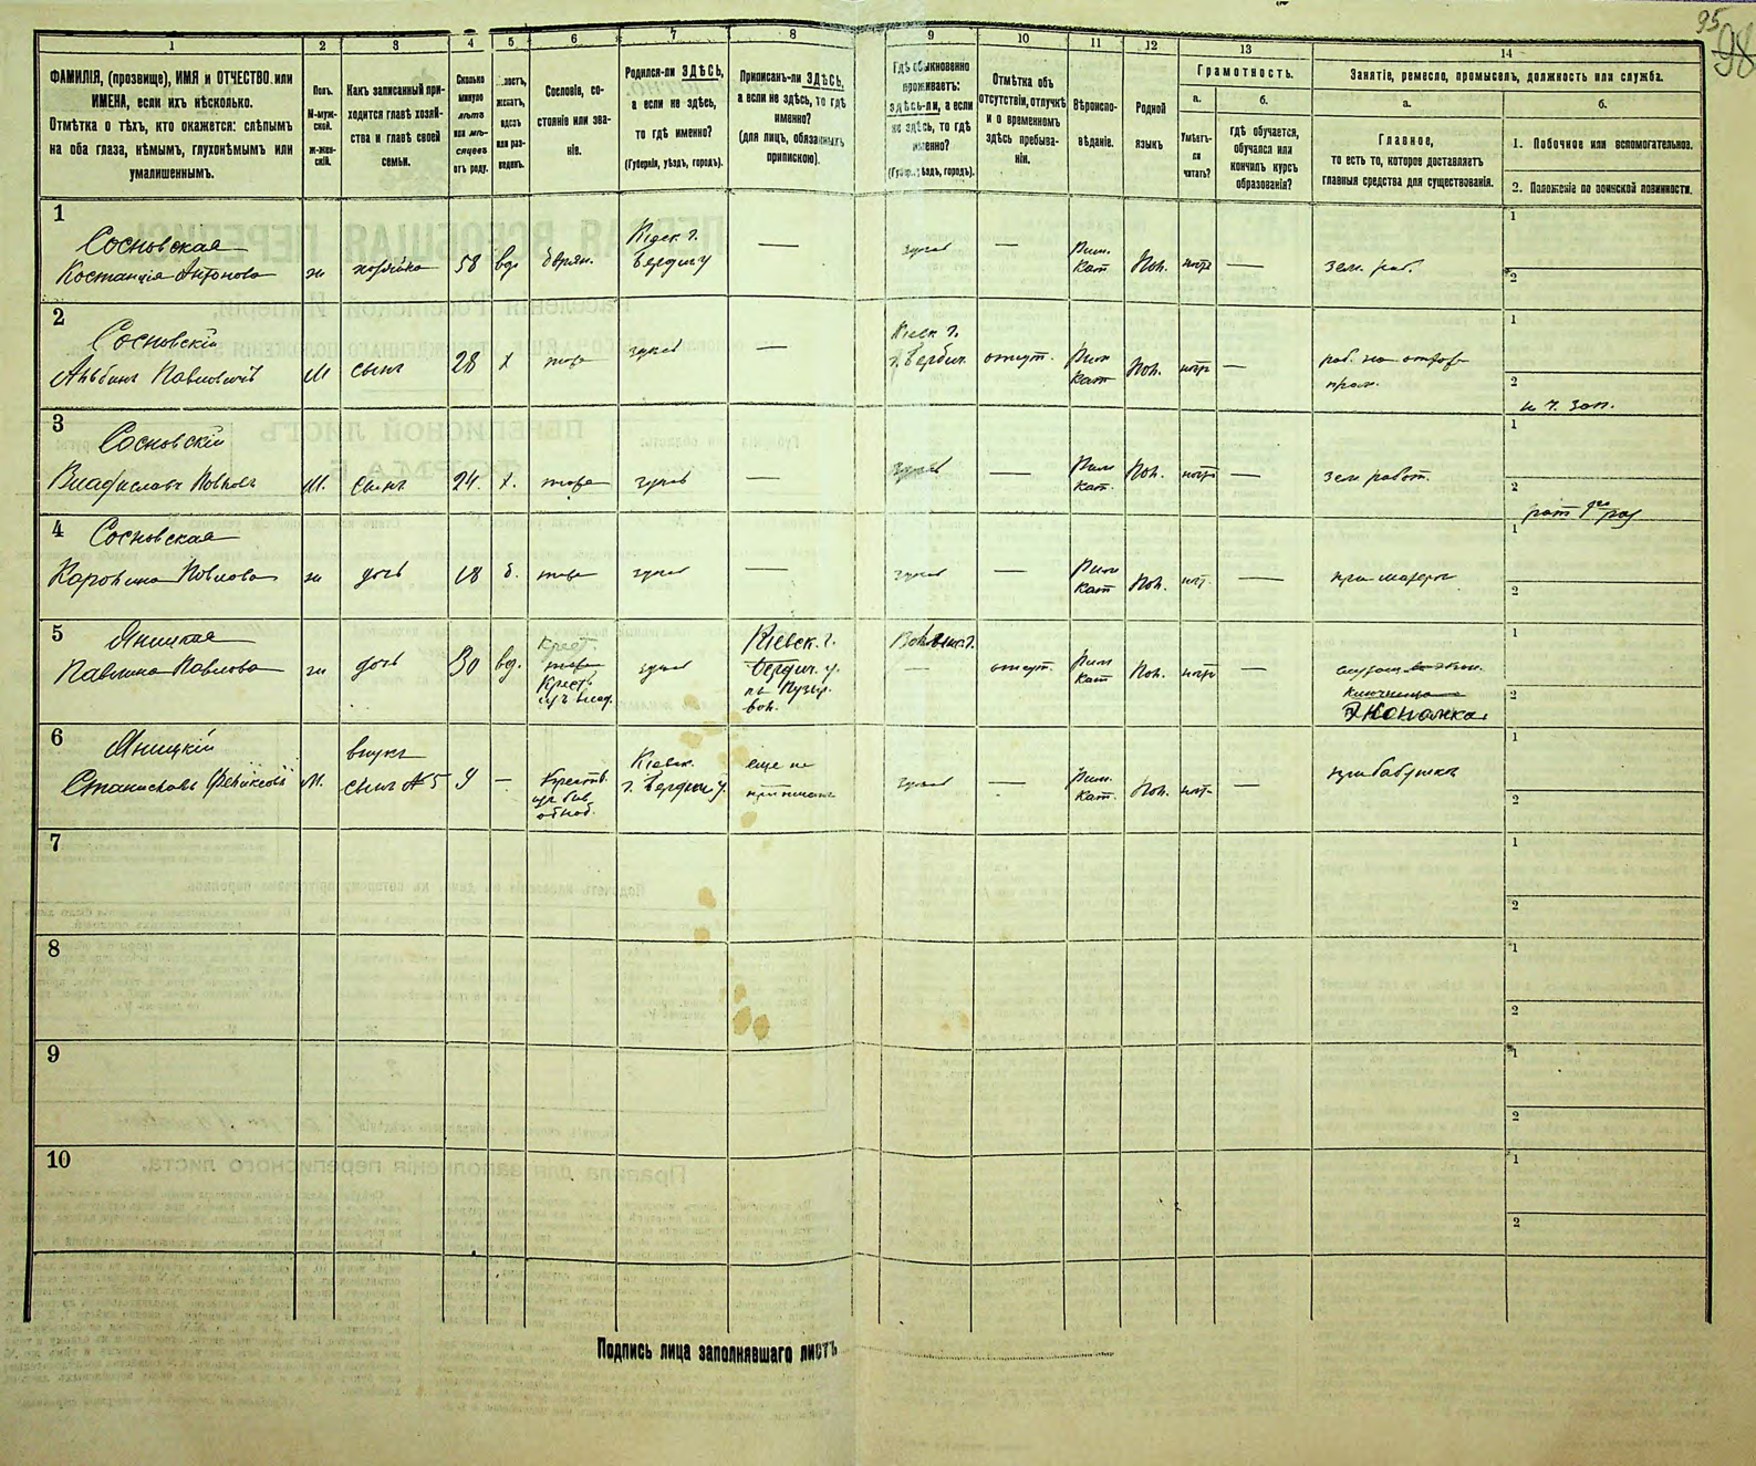 95
98
1 2 3 4 5 6 7 8 9 10 11 12 13 14
ФАМИЛІЯ, (прозвище), ИМЯ и ОТЧЕСТВО или
ИМЕНА, если ихъ нѣсколько.
Отмѣтка о тѣхъ, кто окажется: слѣпымъ
на оба глаза, нѣмымъ, глухонѣмымъ или
умалишеннымъ.
Полъ.
М-муж-
ской.
ж-жен-
скій.
Какъ записанный при-
ходится главѣ хозяй-
ства и главѣ своей
семьи.
Сколько
минуло
лѣтъ
или мѣ-
сяцевъ
отъ роду.
Холостъ,
женатъ,
вдовъ
или раз-
веденъ.
Сословіе, со-
стояніе или зва-
ніе.
Родился-ли ЗДѢСЬ,
а если не здѣсь,
то гдѣ именно?
(Губернія, уѣздъ, городъ).
Приписанъ-ли ЗДѢСЬ,
а если не здѣсь, то гдѣ
именно?
(для лицъ, обязанныхъ
припискою).
Гдѣ обыкновенно
проживаетъ:
здѣсь-ли, а если
не здѣсь, то гдѣ
именно?
(Губ., уѣздъ, городъ).
Отмѣтка объ
отсутствіи, отлучкѣ
и о временномъ
здѣсь пребыва-
ніи.
Вѣроиспо-
вѣданіе.
Родной
языкъ
Грамотность.
а.
Умѣетъ-
ли
читать?
б.
гдѣ обучается,
обучался или
кончилъ курсъ
образованія?
Занятіе, ремесло, промыселъ, должность или служба.
а.
Главное,
то есть то, которое доставляетъ
главныя средства для существованія.
б.
1. Побочное или вспомогательное.
2. Положеніе по воинской повинности.
1
Сосновская
Костанція Антонова
ж хозяйка 58 вд. дворян.
Кіевск. г.
Бердич у
—
здѣсь
—
Рим.
Кат
Пол. нѣтъ —
зем. раб.
1
2
2
Сосновскій
Альбинъ Павловичъ
М сынъ 28 х тоже здѣсь —
Кіевск г.
Бердич.
отсут.
Рим
Кат
Пол. нѣтъ —
1
2
3
Сосновскій
Владиславъ Павловъ
М. сынъ 24. х. тоже здѣсь —
здѣсь
—
Рим
Кат.
Пол. нѣтъ —
зем работ.
1
2
4
Сосновская
Каролина Павлова
ж дочь 18 д. тоже здѣсь —
здѣсь
—
Рим
Кат
Пол. нѣт. —
при матери
1
2
5
Яницкая
Павлина Павлова
ж дочь 30 вд.
Крест.
тоже
Крест.
здѣсь
Кіевск. г.
Бердич. у.
вол.
Волынс. г.
—
отсут.
Рим
Кат
Пол. нѣтъ —
Экономка
1
2
6
Яницкій
Станиславъ Феликсовъ
М.
внукъ
сынъ № 5
9 —
Кіевск.
г. Бердич у.
еще не
приписанъ
здѣсь
—
Рим.
Кат.
Пол. нѣт. —
при бабушкѣ
1
2
7
1
2
8
1
2
9
1
2
10
1
2
Подпись лица заполнявшаго листъ